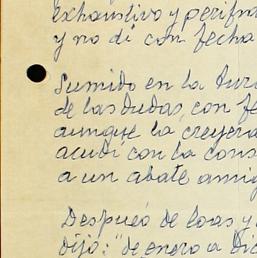 exhaustivo y perifra
y no di con fecha
Sumido en la tur
de las dudas, con fe
aunque la creyera
acudí con la cons
a un abate amig
Después de loas y
dijo: "de enero a Dic